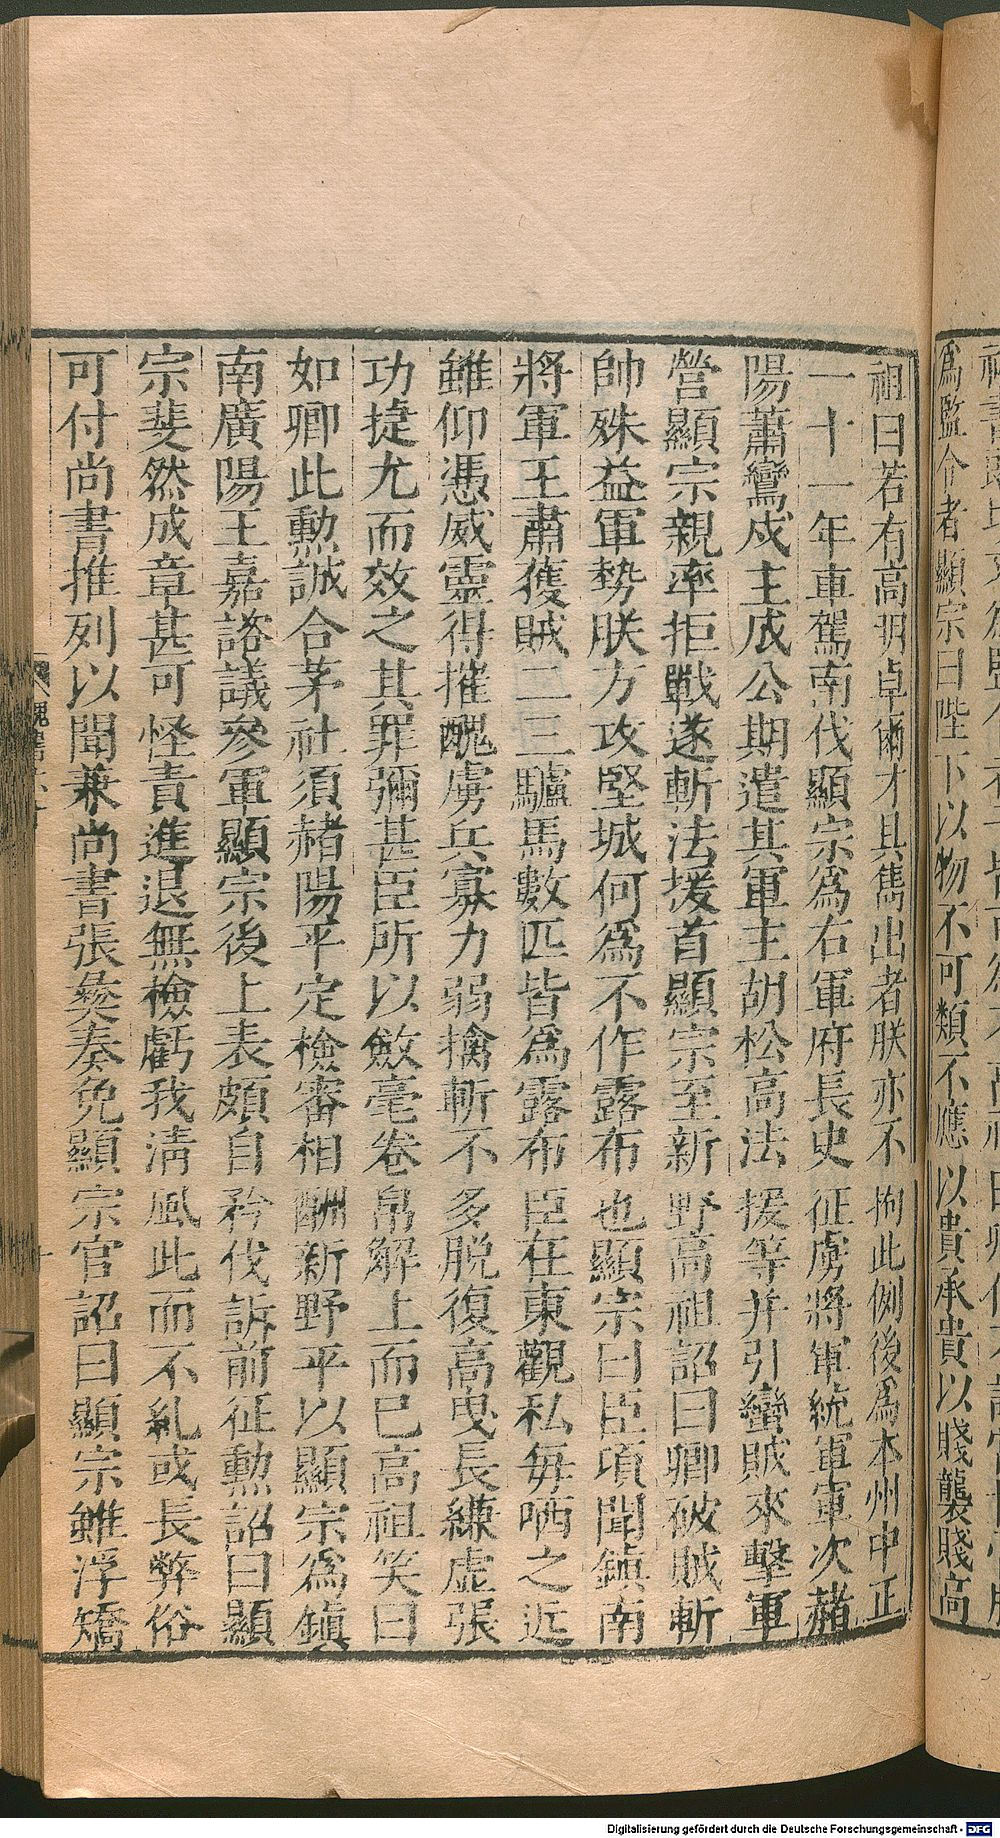 爲監令者顯宗曰陛下以物不可類不應以貴承貴以賤襲賤高
祖曰若有高明卓爾才具雋出者朕亦不拘此例後爲本州中正
一十一年車駕南伐顯宗爲右軍府長史征虜將軍統軍軍次赭
陽蕭鸞戍主成公期遣其軍主胡松高法援等并引蠻賊來擊軍
營顯宗親率拒戰遂斬法援首顯宗至新野高祖詔曰卿破賊斬
帥殊益軍勢朕方攻堅城何爲不作露布也顯宗曰臣頃聞鎮南
將軍王肅獲賊二三驢馬數匹皆爲露布臣在東觀私每哂之近
雖仰憑威靈得摧醜虜兵寡力弱擒斬不多脫復高曳長縑虛張
功捷尤而效之其罪彌甚臣所以斂毫卷帛解上而已高祖笑曰
如卿此勲誠合茅社須赭陽平定檢審相酬新野平以顯宗爲鎮
南廣陽王嘉諮議參軍顯宗後上表頗自矜伐訴前征勲詔曰顯
宗斐然成章甚可怪責進退無檢虧我淸風此而不糺或長弊俗
可付尚書推列以聞兼尚書張彜奏免顯宗官詔曰顯宗雖浮矯